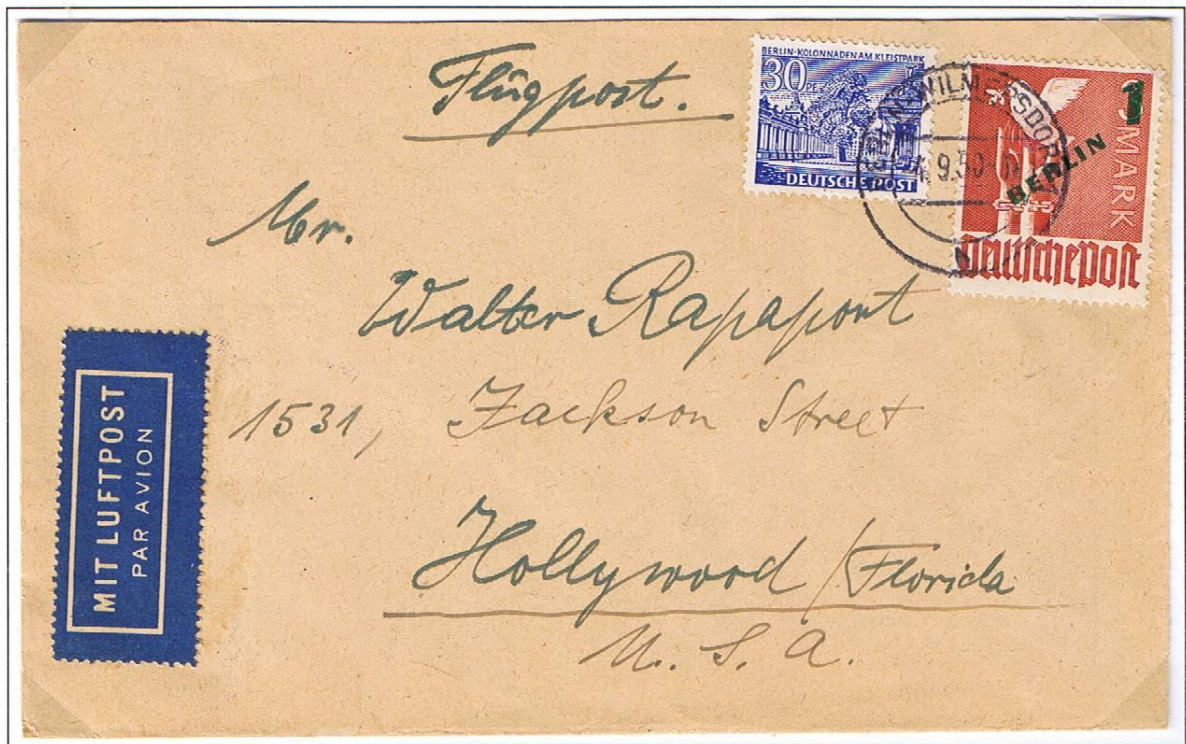 Flugpost.
BERLIN-KOLONNADEN AM KLEISTPARK
30 PF
DEUTSCHE POST
BERLIN-WILMERSDORF
9.50
1
MARK
BERLIN
Deutsche Post
Mr.
Walter Rapaport
1531, Jackson Street
Hollywood/Florida
U.S.A.
MIT LUFTPOST
PAR AVION